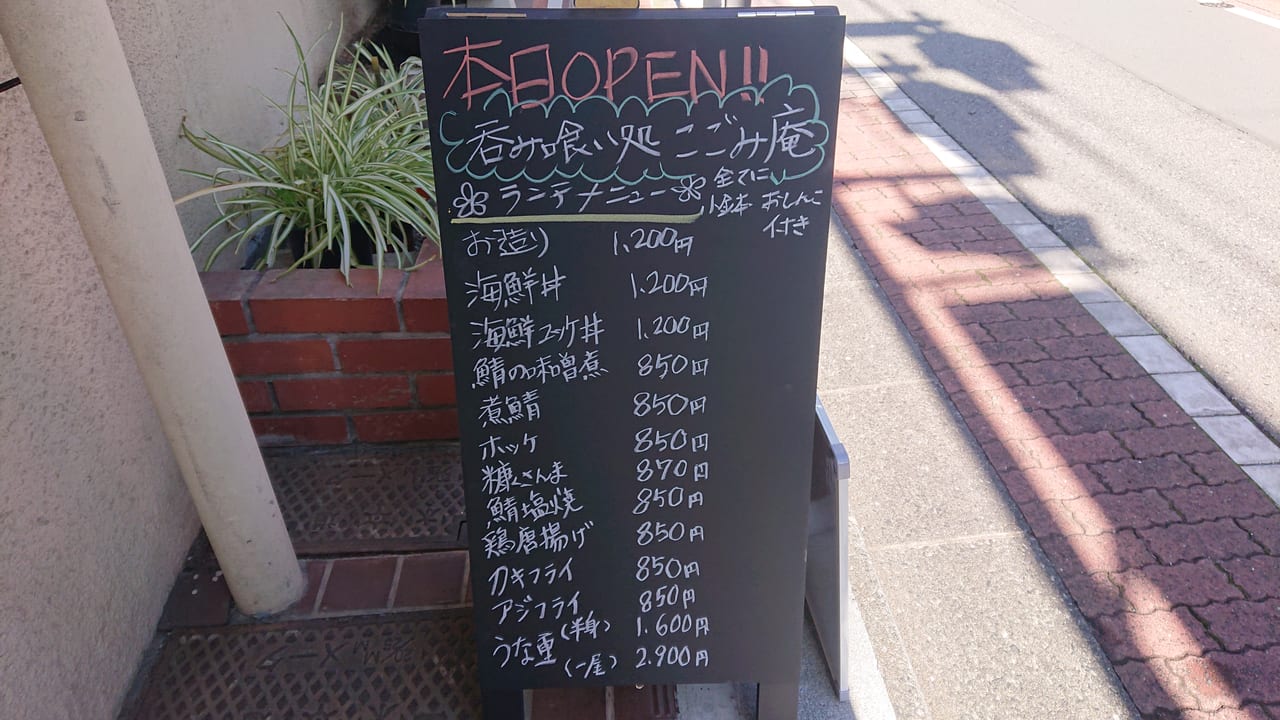 本日OPEN!!
呑み喰い処 こごみ庵
ランチメニュー
全てに
小鉢 おしんこ
付き
お造り 1,200円
海鮮丼 1.200円
海鮮ユッケ丼 1.200円
鯖の味噌煮 850円
煮鯖 850円
ホッケ 850円
糠さんま 870円
鯖塩焼 850円
鶏唐揚げ 850円
カキフライ 850円
アジフライ 850円
うな重 (半身) 1.600円
(一尾) 2.900円